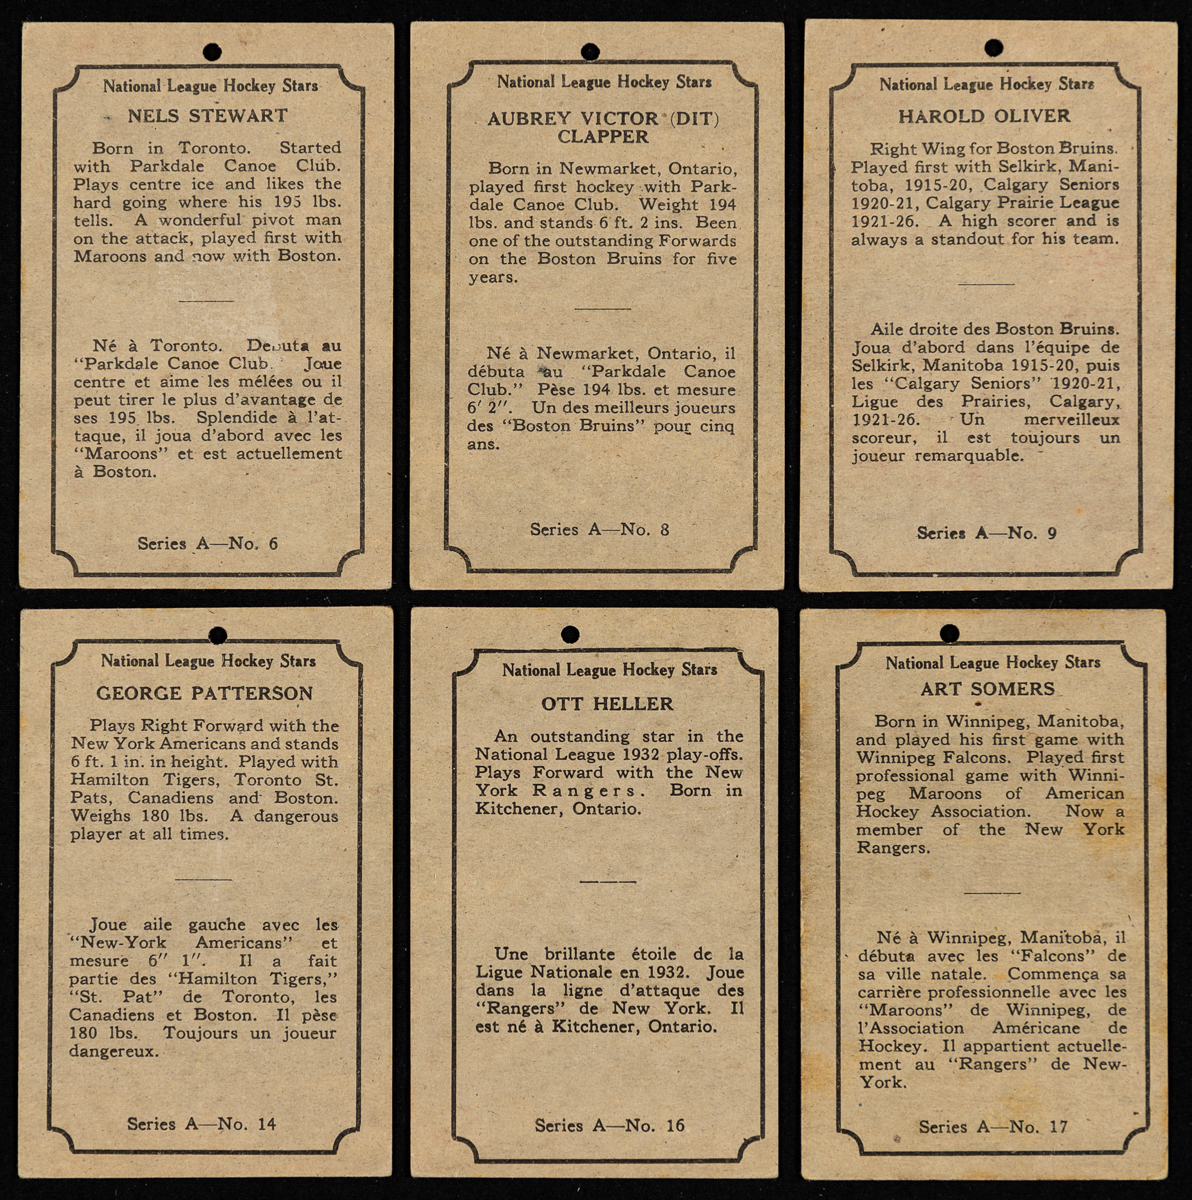 National League Hockey Stars
NELS STEWART
Born in Toronto. Started
with Parkdale Canoe Club.
Plays centre ice and likes the
hard going where his 195 lbs.
tells. A wonderful pivot man
on the attack, played first with
Maroons and now with Boston.
Né à Toronto. Debuta au
"Parkdale Canoe Club. Joue
centre et aime les mélées ou il
peut tirer le plus d'avantage de
ses 195 lbs. Splendide à l'at-
taque, il joua d'abord avec les
"Maroons" et est actuellement
à Boston.
Series A—No. 6
National League Hockey Stars
AUBREY VICTOR (DIT)
CLAPPER
Born in Newmarket, Ontario,
played first hockey with Park-
dale Canoe Club. Weight 194
lbs. and stands 6 ft. 2 ins. Been
one of the outstanding Forwards
on the Boston Bruins for five
years.
Né à Newmarket, Ontario, il
débuta au "Parkdale Canoe
Club." Pèse 194 lbs. et mesure
6' 2". Un des meilleurs joueurs
des "Boston Bruins" pour cinq
ans.
Series A—No. 8
National League Hockey Stars
HAROLD OLIVER
Right Wing for Boston Bruins.
Played first with Selkirk, Mani-
toba, 1915-20, Calgary Seniors
1920-21, Calgary Prairie League
1921-26. A high scorer and is
always a standout for his team.
Aile droite des Boston Bruins.
Joua d'abord dans l'équipe de
Selkirk, Manitoba 1915-20, puis
les "Calgary Seniors" 1920-21,
Ligue des Prairies, Calgary,
1921-26. Un merveilleux
scoreur, il est toujours un
joueur remarquable.
Series A—No. 9
National League Hockey Stars
GEORGE PATTERSON
Plays Right Forward with the
New York Americans and stands
6 ft. 1 in. in height. Played with
Hamilton Tigers, Toronto St.
Pats, Canadiens and Boston.
Weighs 180 lbs. A dangerous
player at all times.
Joue aile gauche avec les
"New-York Americans" et
mesure 6" 1". Il a fait
partie des "Hamilton Tigers,"
"St. Pat" de Toronto, les
Canadiens et Boston. Il pèse
180 lbs. Toujours un joueur
dangereux.
Series A—No. 14
National League Hockey Stars
OTT HELLER
An outstanding star in the
National League 1932 play-offs.
Plays Forward with the New
York Rangers. Born in
Kitchener, Ontario.
Une brillante étoile de la
Ligue Nationale en 1932. Joue
dans la ligne d'attaque des
"Rangers" de New York. Il
est né à Kitchener, Ontario.
Series A—No. 16
National League Hockey Stars
ART SOMERS
Born in Winnipeg, Manitoba,
and played his first game with
Winnipeg Falcons. Played first
professional game with Winni-
peg Maroons of American
Hockey Association. Now a
member of the New York
Rangers.
Né à Winnipeg, Manitoba, il
débuta avec les "Falcons" de
sa ville natale. Commença sa
carrière professionnelle avec les
"Maroons" de Winnipeg, de
l'Association Américane de
Hockey. Il appartient actuelle-
ment au "Rangers" de New-
York.
Series A—No. 17